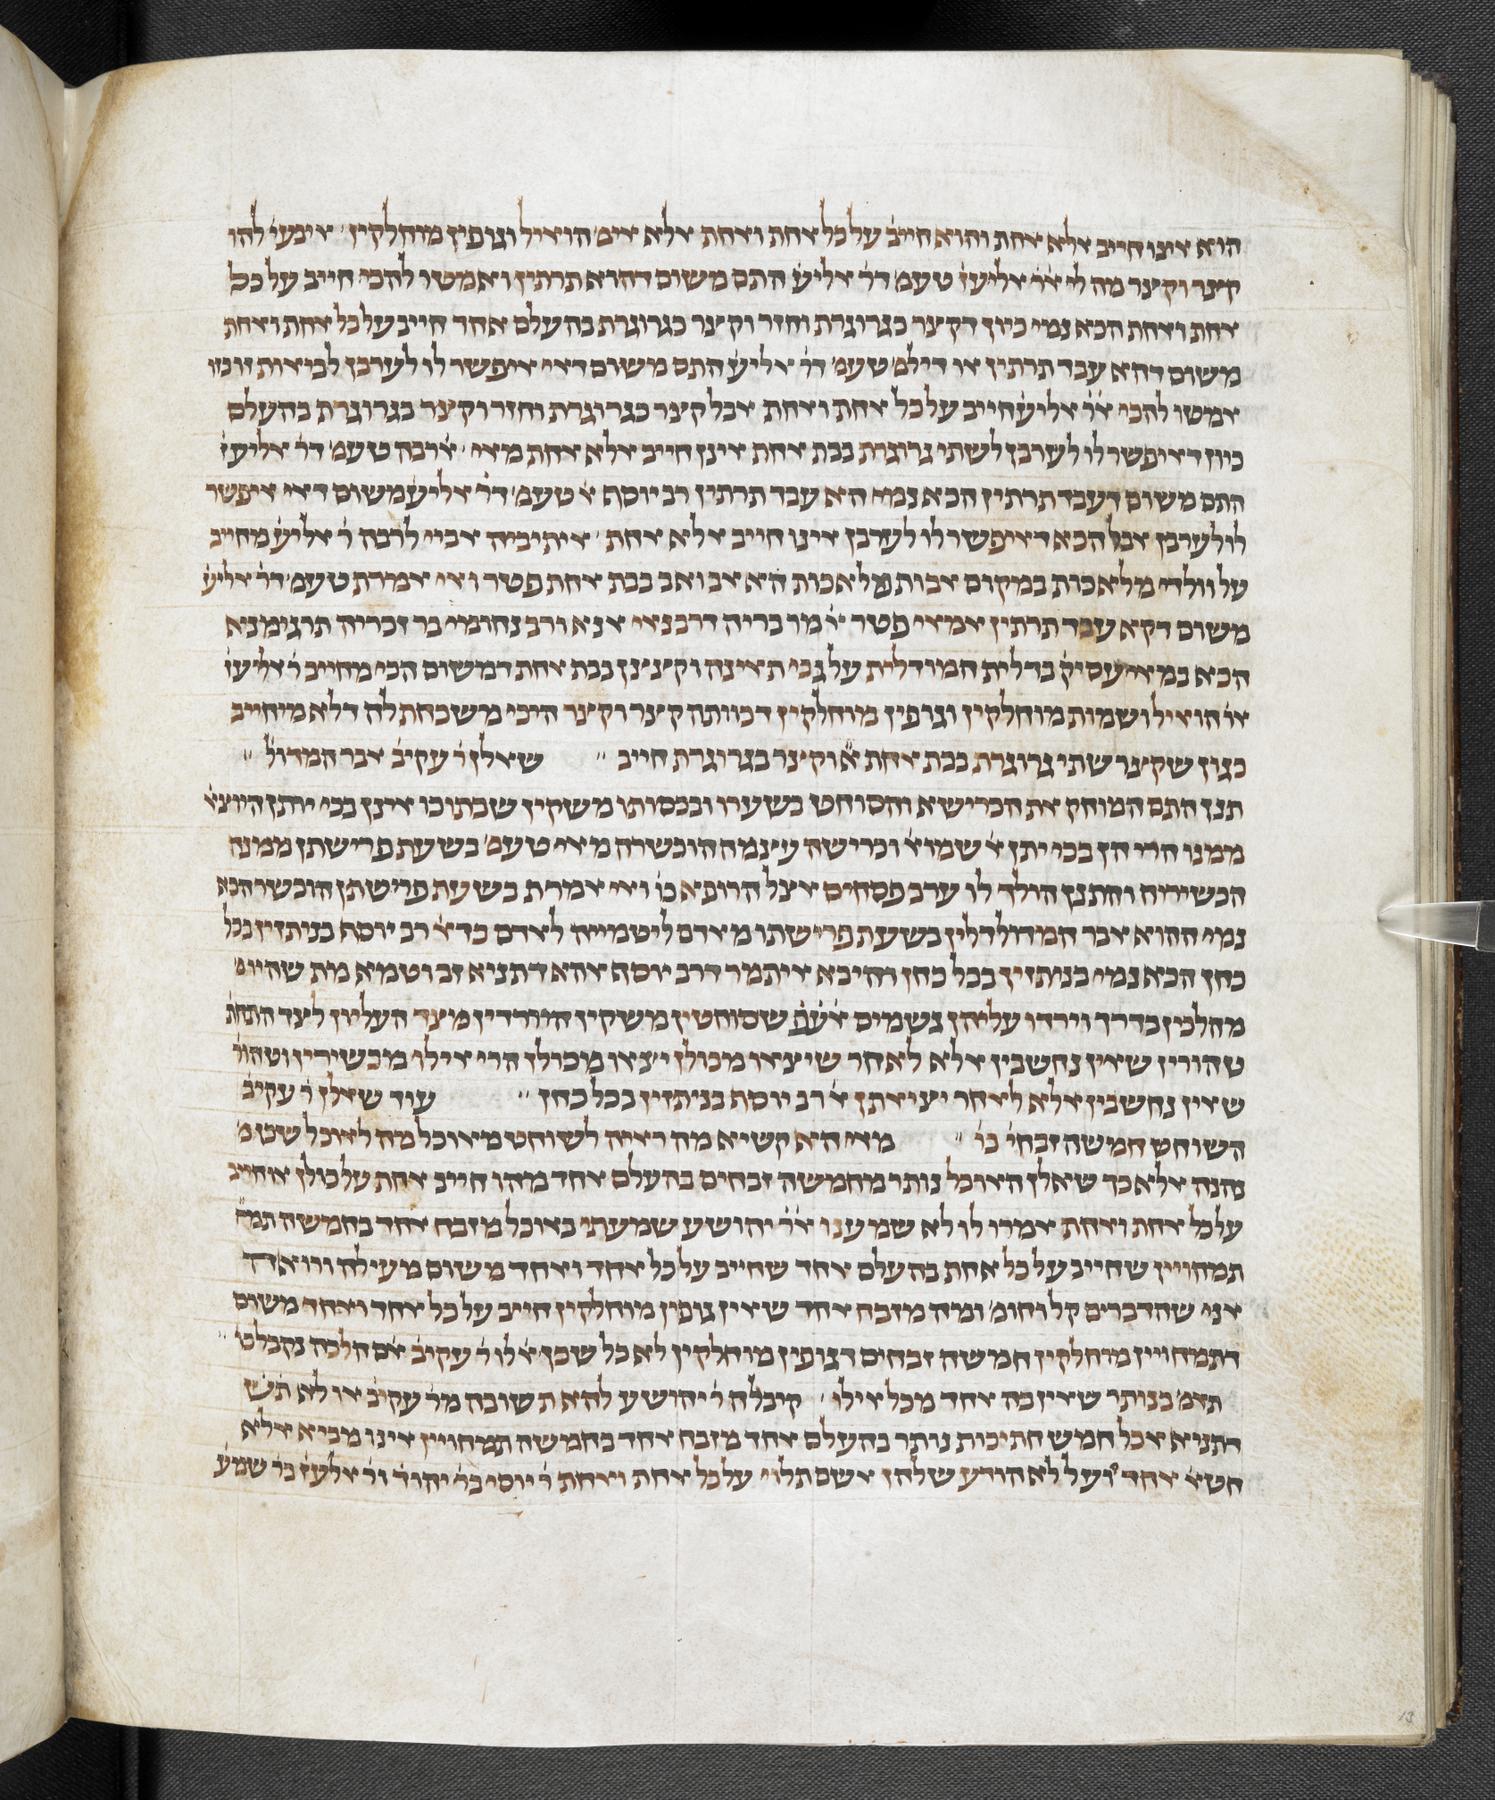 הוא אינו חייב אלא אחת והוא חייב על כל אחת ואחת אלא אימ' הואיל וגופין מוחלקין איבעי' להו
קיצר וקיצר מה לי א"ר אליעז' טעמ' דר' אליע' התם משום דהוא תרתין ואמטו להכי חייב על כל
אחת ואחת הכא נמי כיון דקיצר כגרוגרת וחזר וקיצר כגרוגרת בהעלם אחד חייב על כל אחת ואחת
משום דהא עבד תרתין או דילמ' טעמ' דר' אליע' התם משום דאי איפשר לו לערבן לביאות זו בזו
אמטו להכי א"ר אליע' חייב על כל אחת ואחת אבל קיצר כגרוגרת וחזר וקיצר כגרוגרת בהעלם
כיון דאיפשר לו לערבן לשתי גרוגרת בבת אחת אינן חייב אלא אחת מאי א' רבה טעמ' דר' אליעז'
התם משום דעבד תרתין הכא נמי הא עבד תרתין רב יוסף א' טעמ' דר' אליע' משום דאי איפשר
לו לערבן אבל הכא דאיפשר לו לערבן אינו חייב אלא אחת איתיביה אביי לרבה ר' אליע' מחייב
על וולדי מלאכות במקום אבות מלאכות הא אב ואב בבת אחת פטר ואי אמרת טעמ' דר' אליע'
משום דקא עבד תרתין אמאי פטר א' מר בריה דרבנאי אנא ורב נחומי בר זכריה תרגימנא
הכא במאי עסיק' בדלית המודלית על גבי תאינה וקיצצן בבת אחת דמשום הכי מחייב ר' אליעז'
או הואיל ושמות מוחלקין וגופין מוחלקין דכוותה קיצר וקיצר היכי משכחת לה דלא מיחייב
כגון שקיצר שתי גרוגרת בבת אחת או קיצר כגרוגרת חייב שאלן ר' עקיב' אבר המדול'
תנן התם המוחק את הכרישא והסוחט בשערו ובכסותו משקין שבתוכו אינן בכי יותן היוצא'
ממנו הרי הן בכי יתן א' שמוא' וכרישה עינמה הוכשרה מאי טעמ' בשעת פרישתן ממנה
הכשירוה והתנן הולד לו ערב פסחים אצל הרופא כו' ואי אמרת בשעת פרישתן הוכשר הכא
נמי ההוא אבר המדולדלין בשעת פרישתו מאדם ליטמייה לאדם כדא' רב יוסף בניתזין בכל
כחן הכא נמי בניתזין בכל כחן והיכא איתמר דרב יוסף אהא דתניא זב וטמא מת שהיו
מהלכין בדרך וירדו עליהן גשמים אע"פ שסוחטין משקין היורדין מצד העליון לצד התחת'
טהורין שאין נחשבין אלא לאחר שיצאו מכולן יצאו מכולן הרי אילו מכשירין וטהור'
שאין נחשבין אלא לאחר יציאתן א' רב יוסף בניתזין בכל כחן עוד שאלן ר' עקיב'
השוחט חמשה זבחי' כו' מאי הא קשיא מה ראיה לשוחט מאוכל מה לאוכל שכן
נהנה אלא כך שאלן האוכל נותר מחמשה זבחים בהעלם אחד מהו חייב אחת על כולן או חייב
על כל אחת ואחת אמרו לו לא שמענו א"ר יהושע שמעתי באוכל מזבח אחד בחמשה תמח'
תמחויין שחייב על כל אחת בהעלם אחד שחייב על כל אחד ואחד משום מעילה ורואה
אני שהדברים קל וחומ' ומה מזבח אחד שאין גופין מוחלקין חייב על כל אחד ואחד משום
דתמחויין מוחלקין חמשה זבחים דגופין מוחלקין לא כל שכן א' לו ר' עקיב' אם הלכה נקבל
תאמ' בנותר שאין בה אחד מכל אילו קיבלה ר' יהושע להא תשובה מר' עקיב' או לא ת"ש
דתניא אכל חמש חתיכות נותר בהעלם אחד מזבח אחד בחמשה תמחויין אינו מביא אלא
חטא' אחד' ועל לא הודע שלהן אשם תלוי על כל אחת ואחת ר' יוסי בר' יהוד' ור' אלעז' בר' שמע'
13